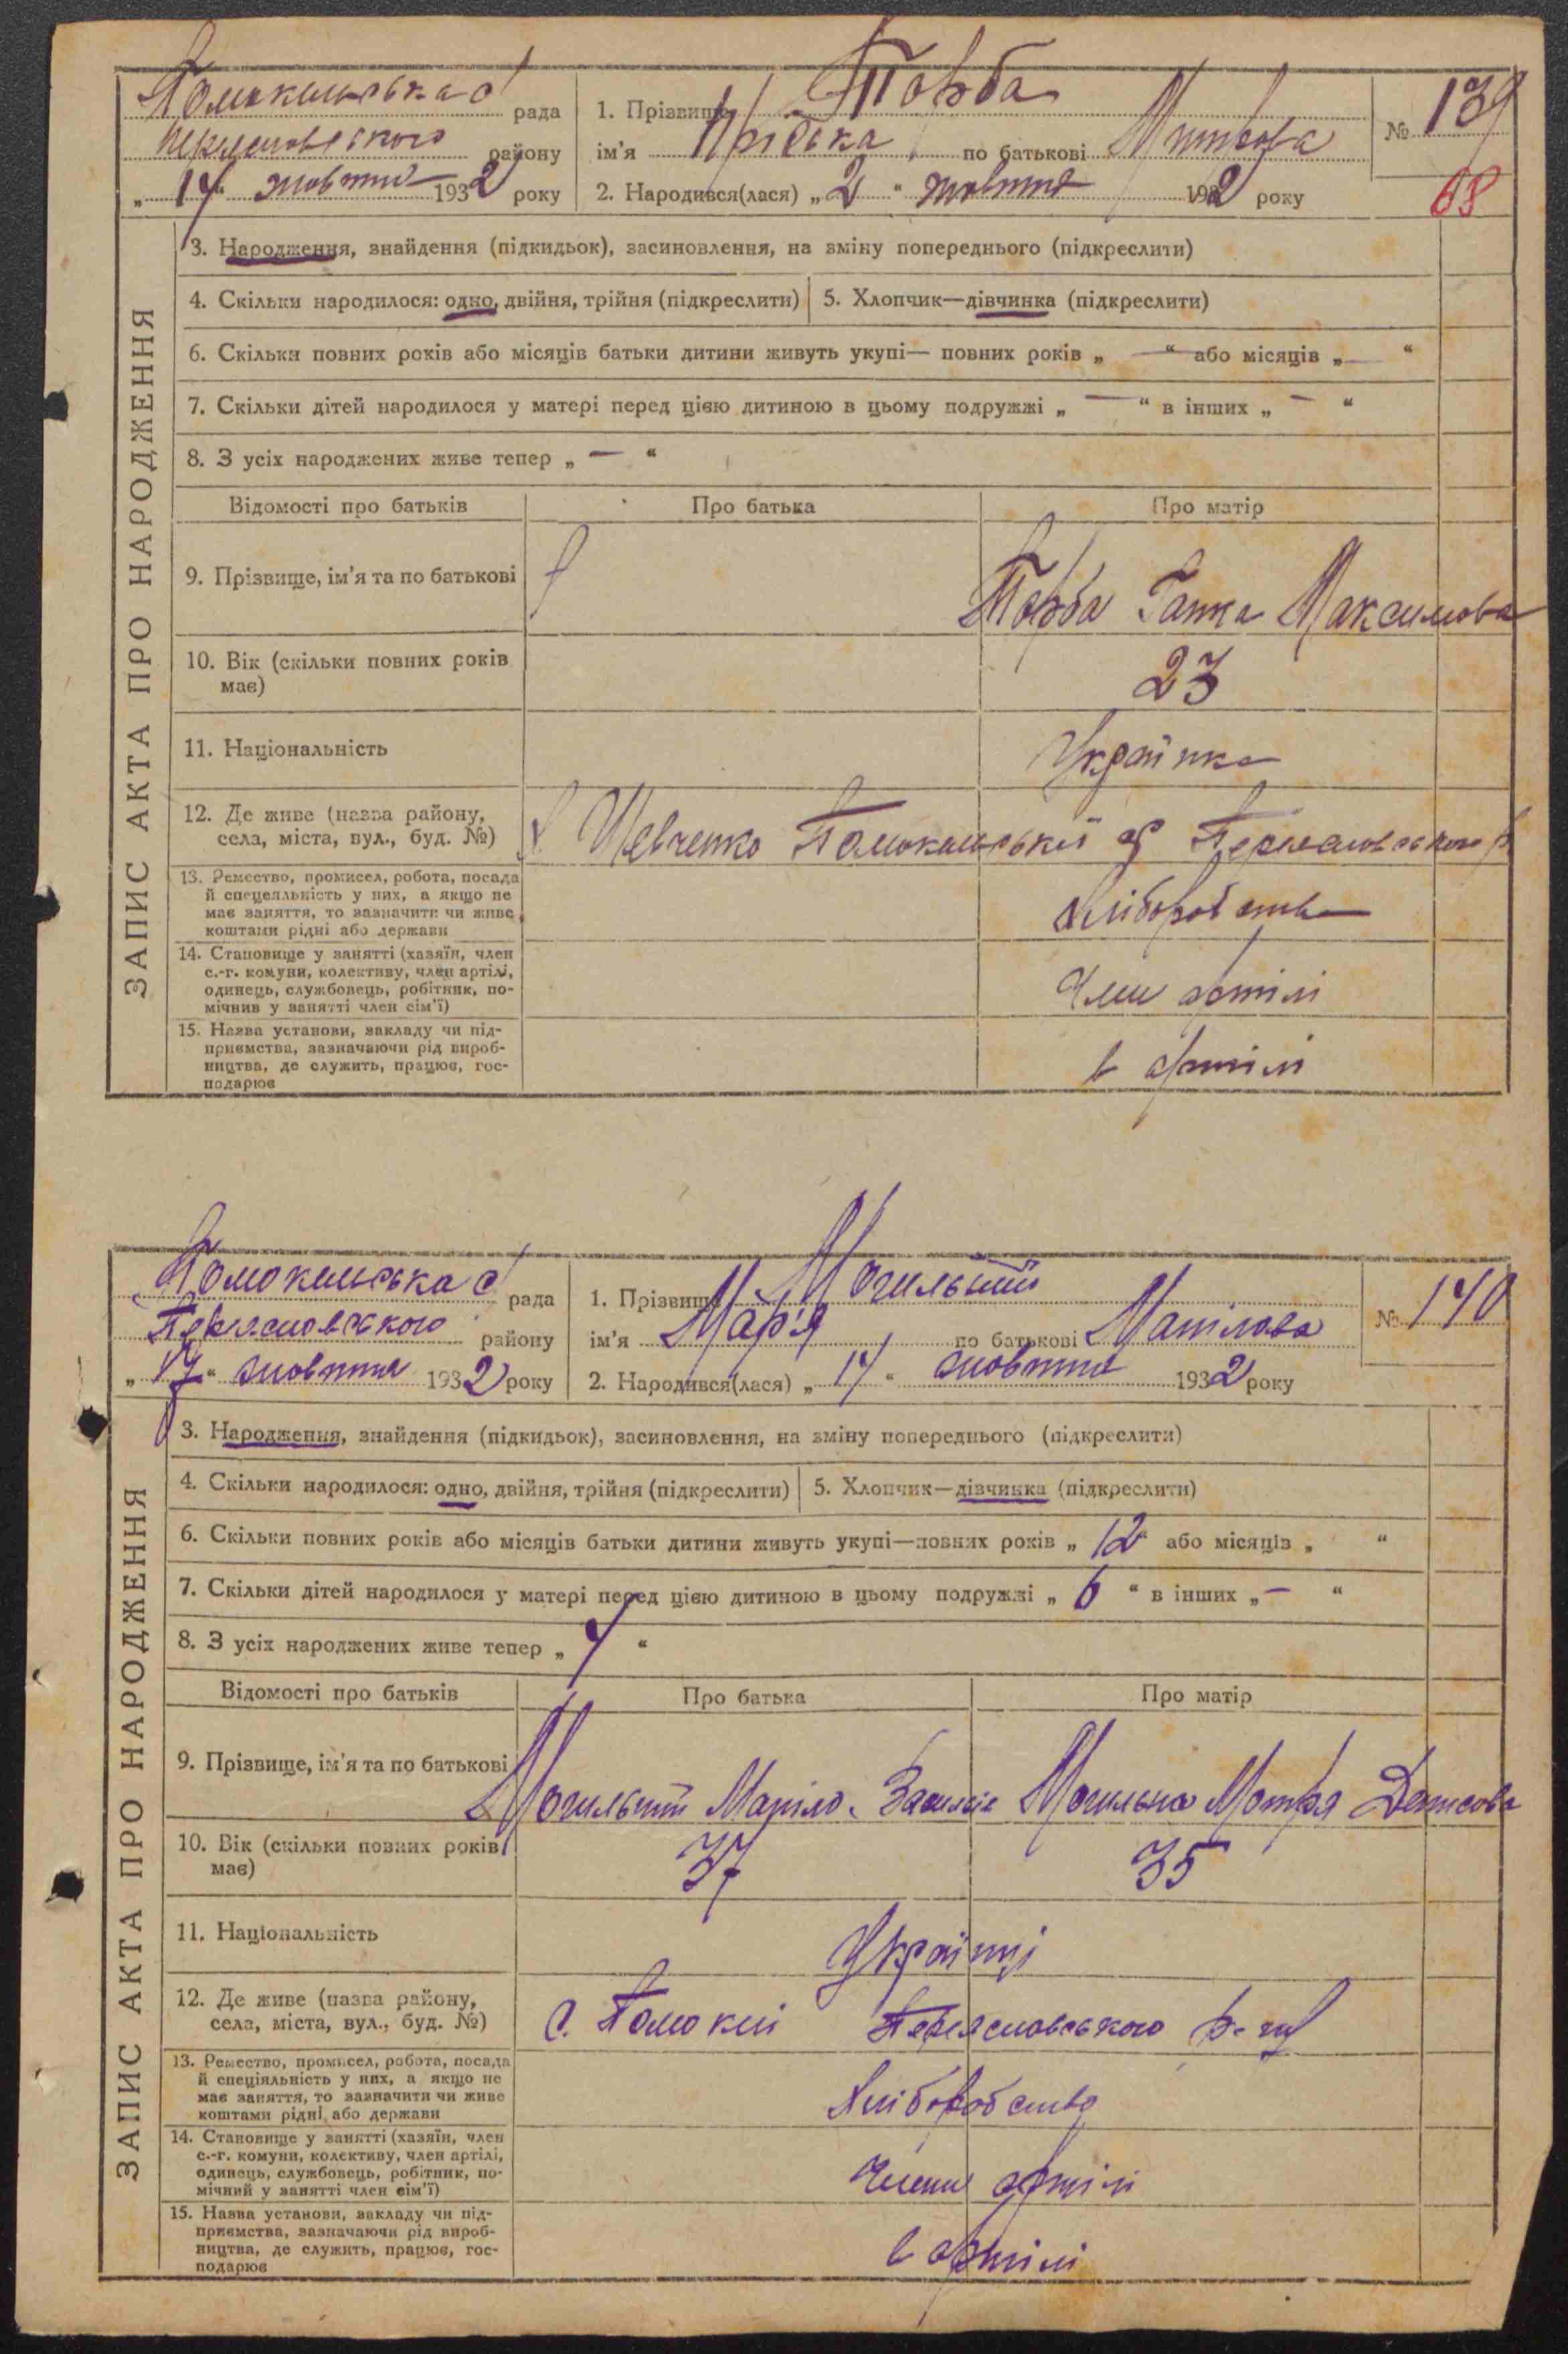 Помоклиська с/ рада
Переяславського району
„14“ жовтня 1932 року
1. Прізвище Торба
ім'я по батькові
2. Народився(лася) „2“ жовтня 1932 року
№ 139
68
ЗАПИС АКТА ПРО НАРОДЖЕННЯ
3. Народження, знайдення (підкидьок), засиновлення, на зміну попереднього (підкреслити)
4. Скільки народилося: одно, двійня, трійня (підкреслити)
5. Хлопчик—дівчинка (підкреслити)
6. Скільки повних років або місяців батьки дитини живуть укупі— повних років „—“ або місяців „—“
7. Скільки дітей народилося у матері перед цією дитиною в цьому подружжі „—“ в інших „—“
8. З усіх народжених живе тепер „—“
Відомості про батьків
Про батька
Про матір
9. Прізвище, ім'я та по батькові
Торба Ганна Максимова
10. Вік (скільки повних років
має)
23
11. Національність
Українка
12. Де живе (назва району,
села, міста, вул., буд. №)
х Шевченко Помоклиської с/ Переяславського р
13. Ремество, промисел, робота, посада
й спецеяльність у них, а якщо не
має заняття, то зазначити чи живе
коштами рідні або держави
хліборобство
14. Становище у занятті (хазяїн, член
с.-г. комуни, колективу, член артілі,
одинець, службовець, робітник, по-
мічнив у занятті член сім'ї)
Член артілі
15. Назва установи, закладу чи під-
приємства, зазначаючи рід вироб-
ництва, де служить, працює, гос-
подарює
в артілі
Помоклиська с/ рада
Переяславського району
„17“ жовтня 1932 року
1. Прізвище Могильний
ім'я Мар'я по батькові
2. Народився(лася) „14“ жовтня 1932 року
№ 140
ЗАПИС АКТА ПРО НАРОДЖЕННЯ
3. Народження, знайдення (підкидьок), засиновлення, на зміну попереднього (підкреслити)
4. Скільки народилося: одно, двійня, трійня (підкреслити)
5. Хлопчик—дівчинка (підкреслити)
6. Скільки повних років або місяців батьки дитини живуть укупі—повних років „12“ або місяців „ “
7. Скільки дітей народилося у матері перед цією дитиною в цьому подружжі „6“ в інших „—“
8. З усіх народжених живе тепер „4“
Відомості про батьків
Про батька
Про матір
9. Прізвище, ім'я та по батькові
Могильний
Могильна Мотря Денисова
10. Вік (скільки повних років
має)
37
35
11. Національність
Українці
12. Де живе (назва району,
села, міста, вул., буд. №)
с. Помоклі Переяславського р-ну
13. Ремество, промисел, робота, посада
й спеціяльність у них, а якщо не
має заняття, то зазначити чи живе
коштами рідні або держави
Хліборобство
14. Становище у занятті (хазяїн, член
с.-г. комуни, колективу, член артілі,
одинець, службовець, робітник, по-
мічний у занятті член сім'ї)
Члени артілі
15. Назва установи, закладу чи під-
приємства, зазначаючи рід вироб-
ництва, де служить, працює, гос-
подарює
в артілі